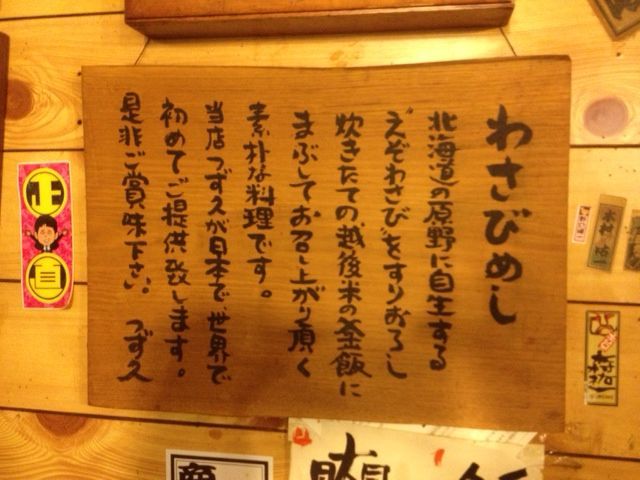 わさびめし
北海道の原野に自生する
"えぞわさび"をすりおろし
炊きたての越後米の釜飯に
まぶしてお召し上がり頂く
素朴な料理です。
当店つず久が日本で、世界で
初めてご提供致します。
是非ご賞味下さい。 つず久